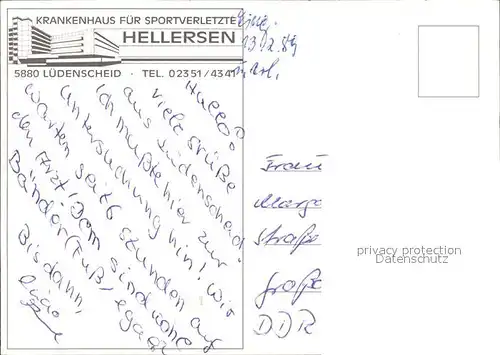 KRANKENHAUS FÜR SPORTVERLETZTE
HELLERSEN
5880 LÜDENSCHEID · TEL. 02351/4341
13.2.89
Hallo!
viele Grüße
aus Lüdenscheid.
Ich mußte hier zur
Untersuchung hin! Wir
warten seit 6 Stunden auf
den Arzt! Dem sind meine
Bänder (Fuß) egal
Bis dann,
Frau
Marga
Straße
große
DDR
privacy protection
Datenschutz